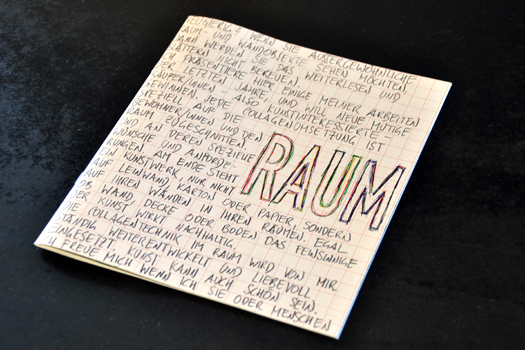 NEUGIERIG? WENN SIE AUßERGEWÖHNLICHE
RAUM- UND WANDOBJEKTE SEHEN MÖCHTEN
DANN WERDEN SIE DAS WEITERLESEN UND
BLÄTTERN NICHT BEREUEN.
ICH PRÄSENTIERE HIER EINIGE MEINER ARBEITEN
DER LETZTEN JAHRE UND WILL NEUE MUTIGE
KÄUFER/INNEN - ALSO KUNSTINTERESSIERTE -
GEWINNEN. JEDE COLLAGENUMSETZUNG IST
SPEZIELL AUF DIE
BEWOHNER/INNEN UND DEN
RAUM ZUGESCHNITTEN
UND AN DEREN SPEZIELLE
WÜNSCHE UND ANFORDE-
RUNGEN. AM ENDE STEHT
KUNSTWERK, NUR NICHT
AUF LEINWAND, KARTON ODER PAPIER, SONDERN
AUF IHREN WÄNDEN IN IHREN RÄUMEN. EGAL
OB WAND, DECKE ODER BODEN DAS FEINSINNIGE
DER KUNST WIRKT NACHHALTIG.
DIE COLLAGENTECHNIK IM RAUM WIRD VON MIR
STÄNDIG WEITERENTWICKELT UND LIEBEVOLL
EINGESETZT. KUNST KANN AUCH SCHÖN SEIN.
ICH FREUE MICH WENN ICH SIE ODER MENSCHEN
RAUM